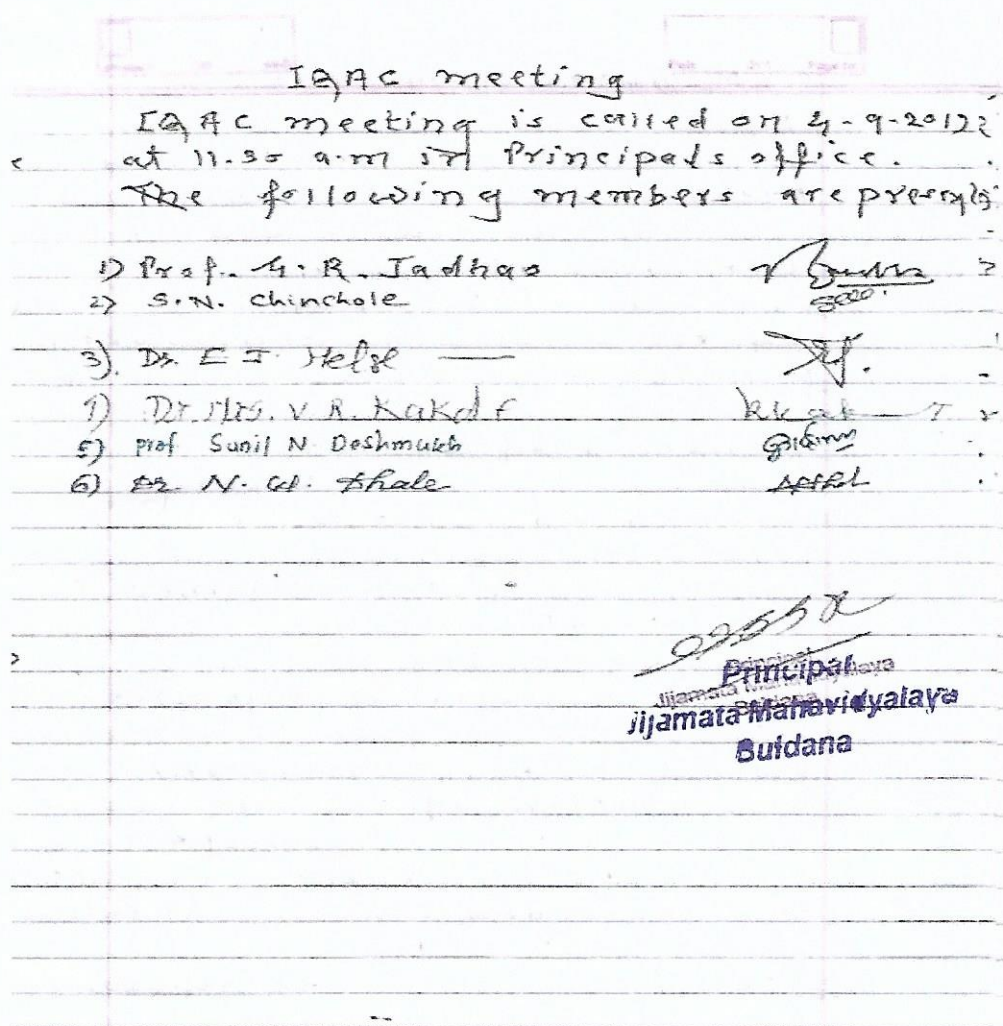 IQAC meeting
IQAC meeting is called on 4-9-2012
at 11.30 a.m in Principals office.
The following members are present
1) Prof. G. R. Jadhao
2) S.N. Chinchole
3). Dr. E J. Helge
4) Dr. Mrs. V. R. Kakde
5) Prof Sunil N Deshmukh
6) Dr. N. W. Dhale
Principal
Jijamata Mahavidyalaya
Buldana